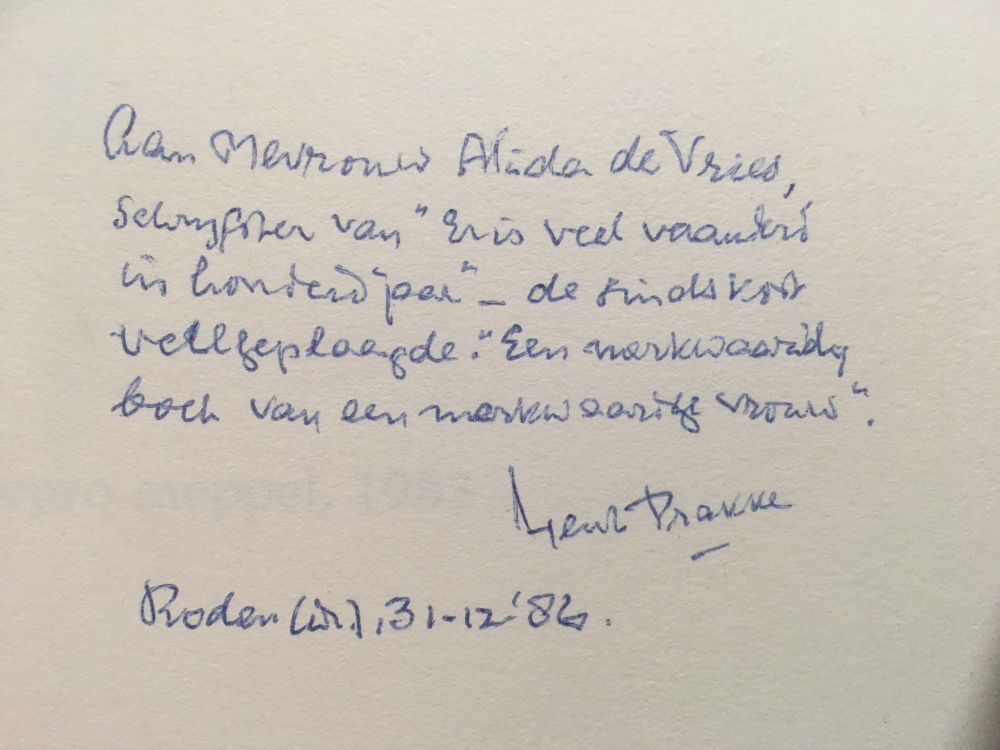 Aan Mevrouw Alida de Vries,
Schrijfster van "Er is veel veranderd
in honderd jaar" – de sinds kort
veelgeplaagde: "Een merkwaardig
boek van een merkwaardige vrouw".
Henk Prakke
Roden (Dr.), 31-12-'86.
meppel, 1983